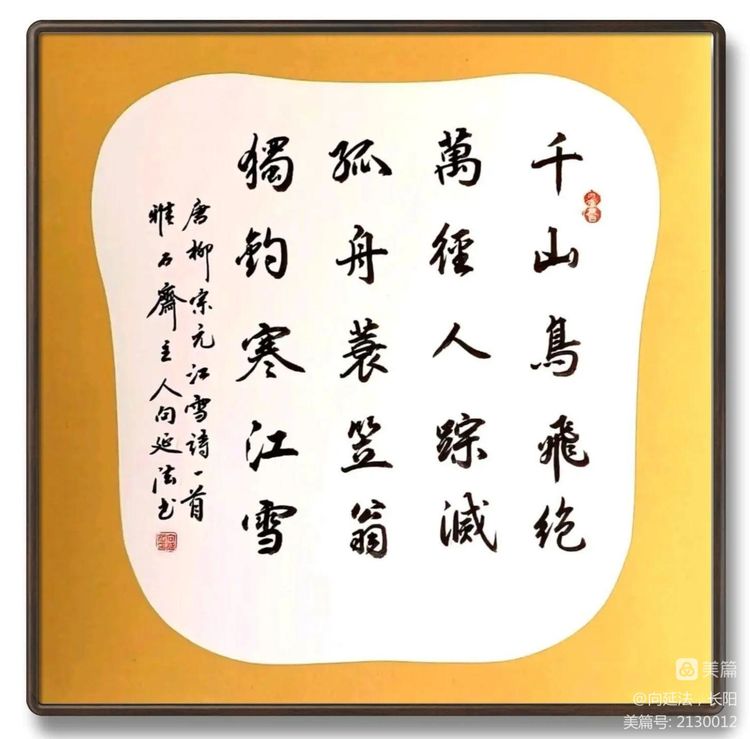 千山鳥飛絕
萬徑人踪滅
孤舟蓑笠翁
獨釣寒江雪
唐柳宗元江雪詩一首
雅石齋主人向延法书
美篇
@向延法，长阳
美篇号: 2130012